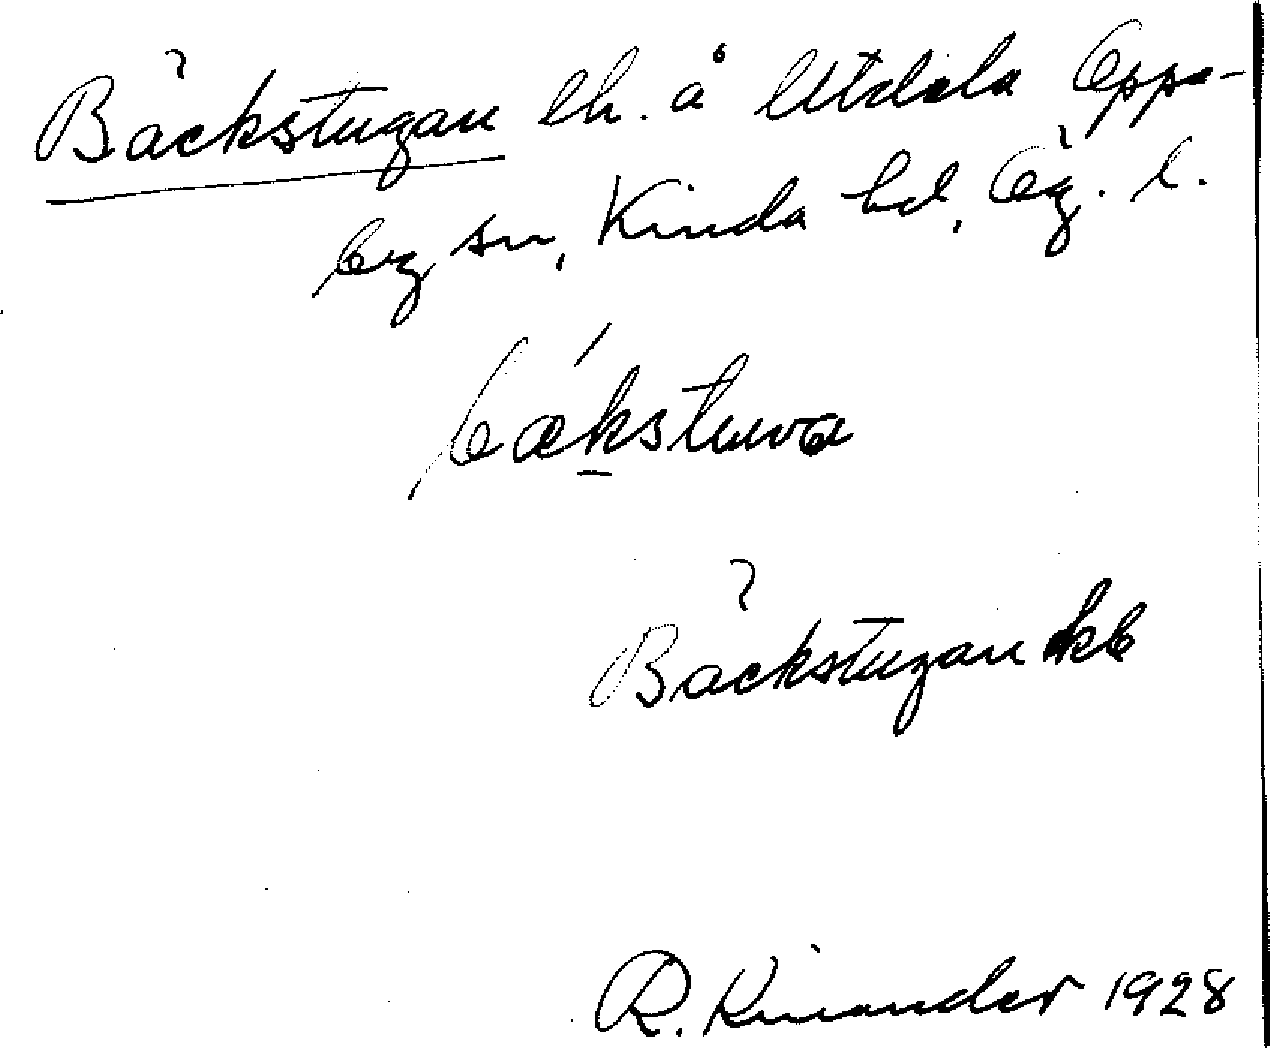 Bäckstugan lh. å Utdala Oppe-
by sn, Kinda hd, Ög. l.
bækstuwa
Bäckstugan kb
R. Kinander 1928